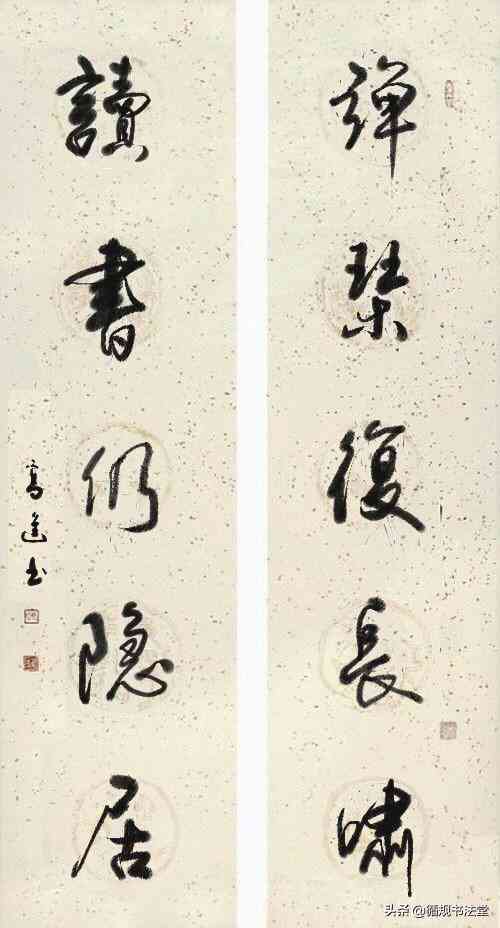 彈琹復長嘯
讀書仍隐居
高 书
头条 @循规书法堂